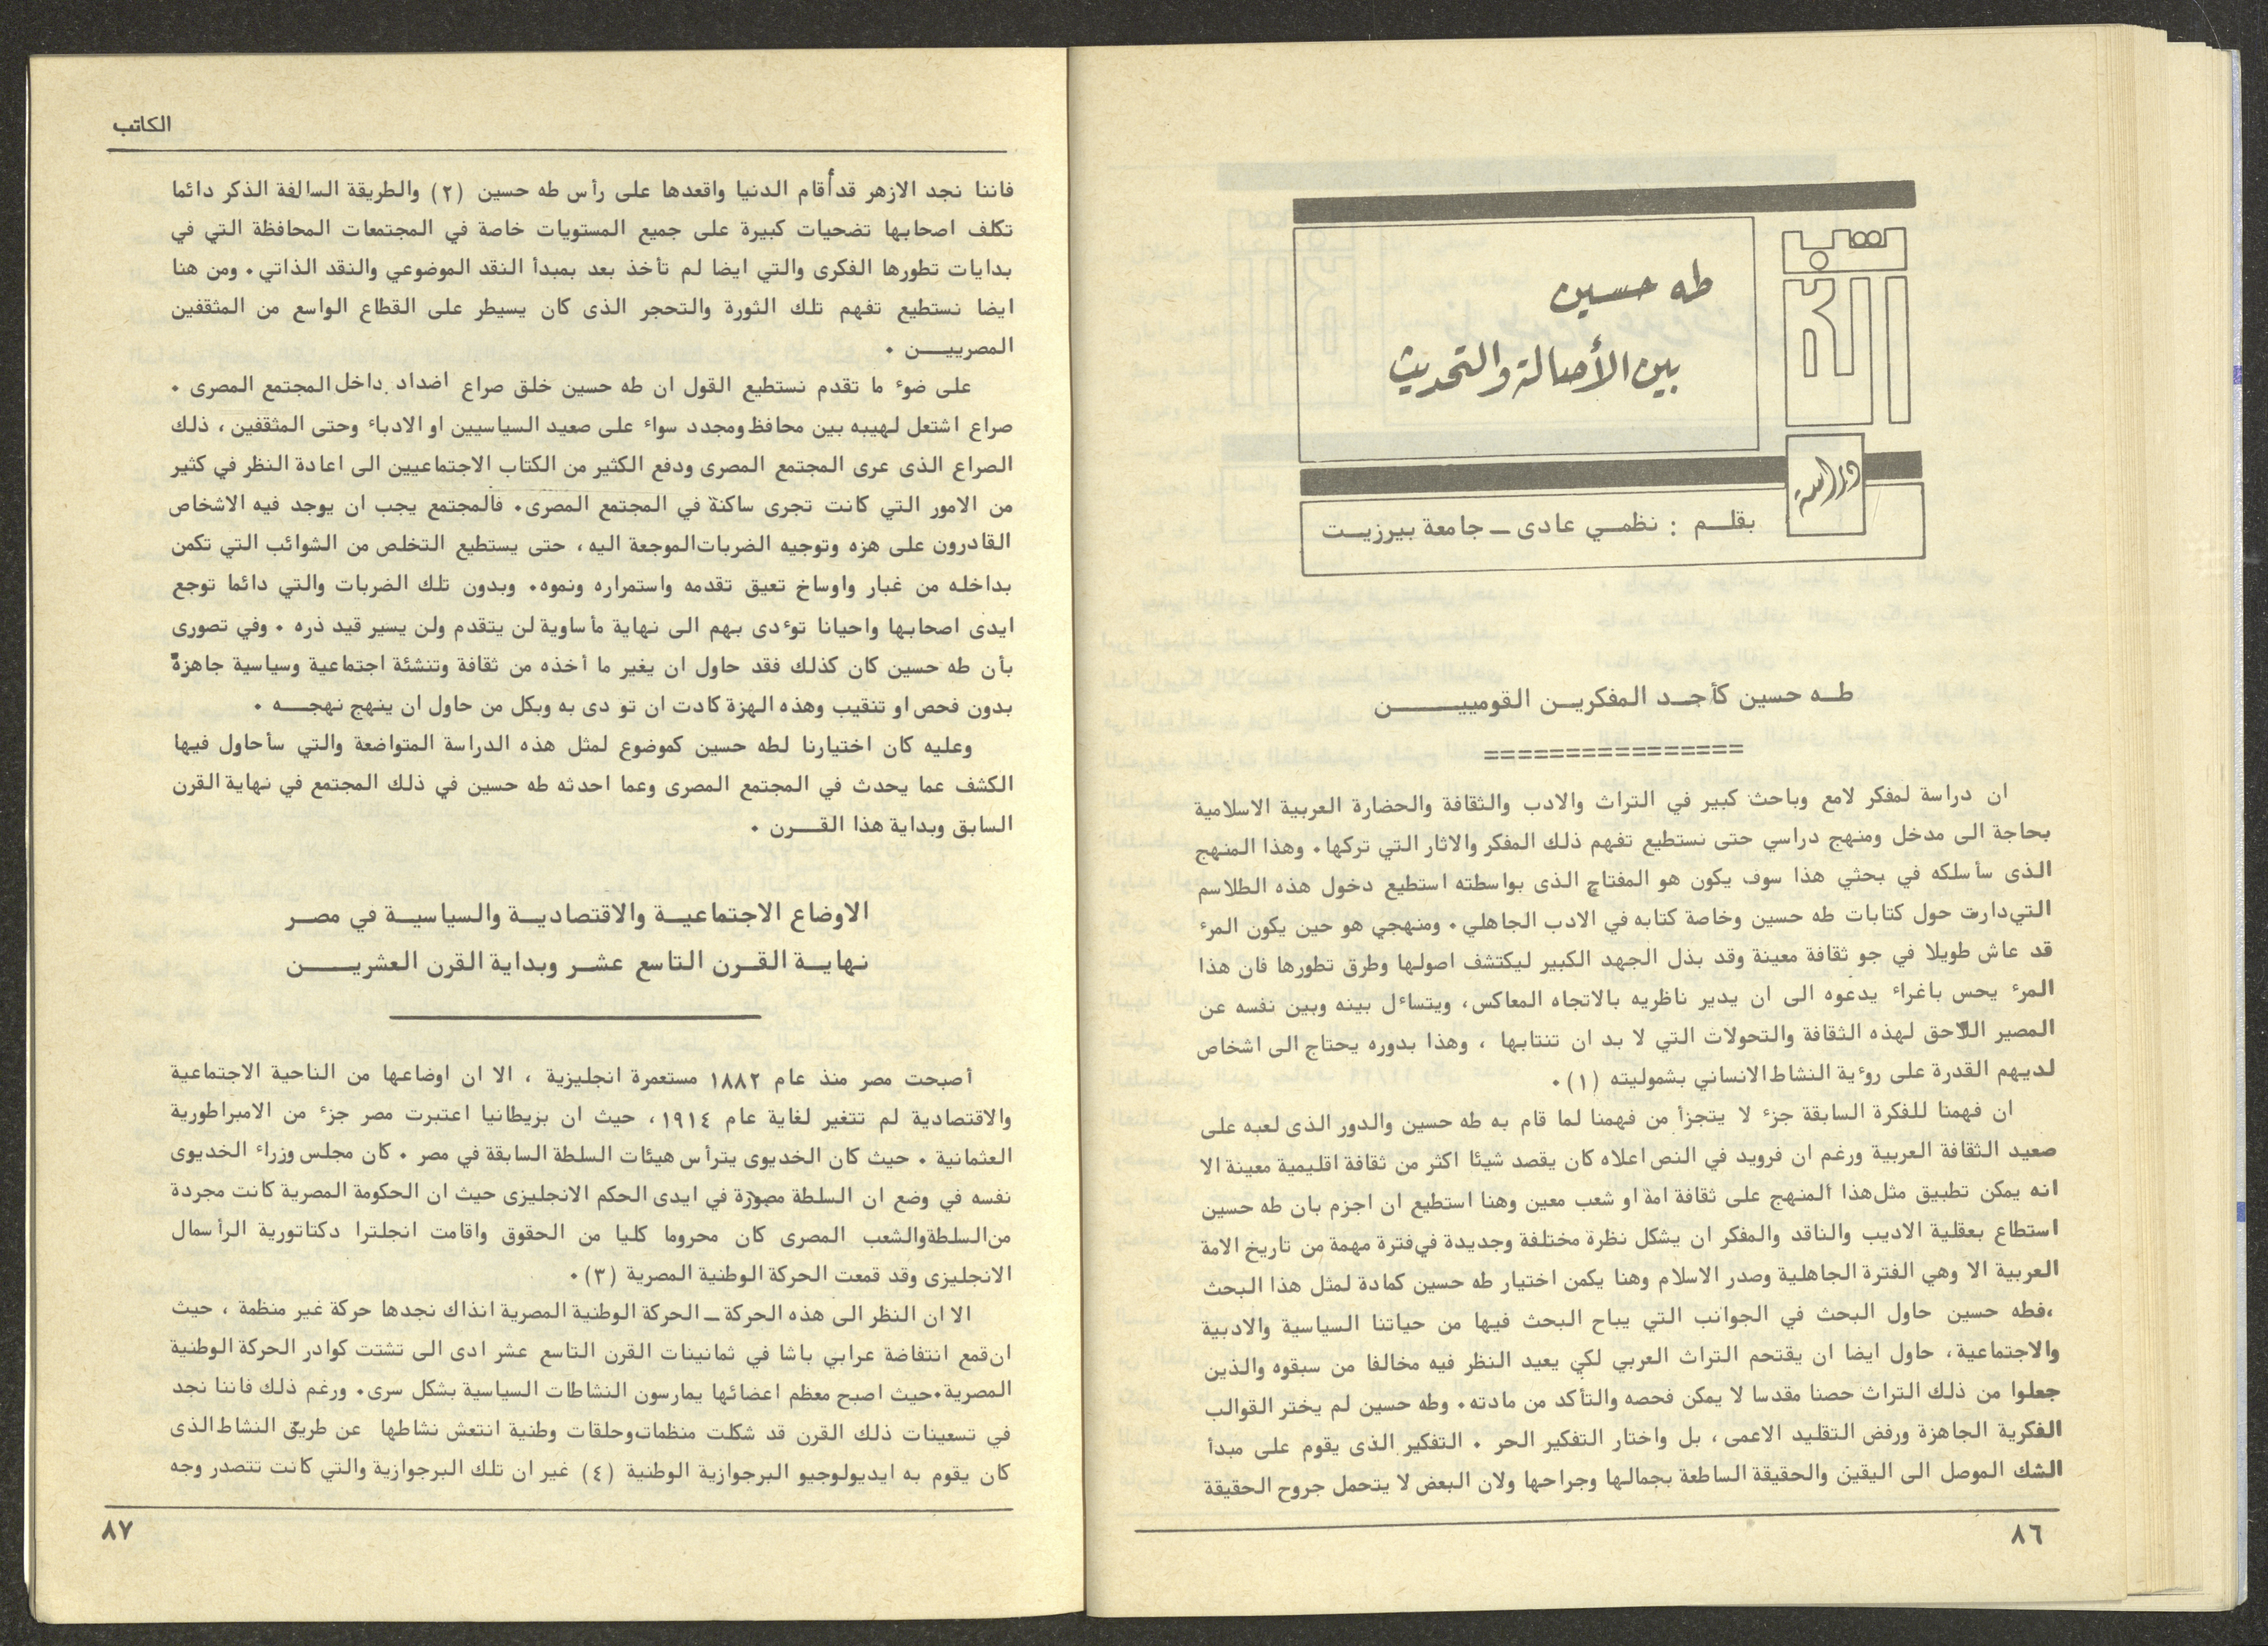 التراث
طه حسين
بين الأصالة والتحديث
دراسة
بقلــم : نظمــي عادى ــ جامعة بيرزيــت
طــه حسين كأحــد المفكريــن القومييــــــن
================
ان دراسة لمفكر لامع وباحث كبير في التراث والادب والثقافة والحضارة العربية الاسلامية
بحاجة الى مدخل ومنهج دراسي حتى نستطيع تفهم ذلك المفكر والاثار التي تركها٠ وهذا المنهج
الذى سأسلكه في بحثي هذا سوف يكون هو المفتاح الذى بواسطته استطيع دخول هذه الطلاسم
التي دارت حول كتابات طه حسين وخاصة كتابه في الادب الجاهلي ٠ ومنهجي هو حين يكون المرء
قد عاش طويلا في جو ثقافة معينة وقد بذل الجهد الكبير ليكتشف اصولها وطرق تطورها فان هذا
المرء يحس باغراء يدعوه الى ان يدير ناظريه بالاتجاه المعاكس، ويتساءل بينه وبين نفسه عن
المصير اللاحق لهذه الثقافة والتحولات التي لا بد ان تنتابها ، وهذا بدوره يحتاج الى اشخاص
لديهم القدرة على روءية النشاط الانساني بشموليته (١)٠
ان فهمنا للفكرة السابقة جزء لا يتجزأ من فهمنا لما قام به طه حسين والدور الذى لعبه على
صعيد الثقافة العربية ورغم ان فرويد في النص اعلاه كان يقصد شيئا اكثر من ثقافة اقليمية معينة الا
انه يمكن تطبيق مثل هذا المنهج على ثقافة امة او شعب معين وهنا استطيع ان اجزم بان طه حسين
استطاع بعقلية الاديب والناقد والمفكر ان يشكل نظرة مختلفة وجديدة في فترة مهمة من تاريخ الامة
العربية الا وهي الفترة الجاهلية وصدر الاسلام وهنا يكمن اختيار طه حسين كمادة لمثل هذا البحث
،فطه حسين حاول البحث في الجوانب التي يباح البحث فيها من حياتنا السياسية والادبية
والاجتماعية، حاول ايضا ان يقتحم التراث العربي لكي يعيد النظر فيه مخالفا من سبقوه والذين
جعلوا من ذلك التراث حصنا مقدسا لا يمكن فحصه والتأكد من مادته٠ وطه حسين لم يختر القوالب
الفكرية الجاهزة ورفض التقليد الاعمى، بل واختار التفكير الحر ٠ التفكير الذى يقوم على مبدأ
الشك الموصل الى اليقين والحقيقة الساطعة بجمالها وجراحها ولان البعض لا يتحمل جروح الحقيقة
٨٦
الكاتب
فاننا نجد الازهر قد أقام الدنيا واقعدها على رأس طه حسين (٢) والطريقة السالفة الذكر دائما
تكلف اصحابها تضحيات كبيرة على جميع المستويات خاصة في المجتمعات المحافظة التي في
بدايات تطورها الفكرى والتي ايضا لم تأخذ بعد بمبدأ النقد الموضوعي والنقد الذاتي ٠ ومن هنا
ايضا نستطيع تفهم تلك الثورة والتحجر الذى كان يسيطر على القطاع الواسع من المثقفين
المصرييــــن ٠
على ضوء ما تقدم نستطيع القول ان طه حسين خلق صراع اضداد داخل المجتمع المصرى ٠
صراع اشتعل لهيبه بين محافظ ومجدد سواء على صعيد السياسيين او الادباء وحتى المثقفين ، ذلك
الصراع الذى عرى المجتمع المصرى ودفع الكثير من الكتاب الاجتماعيين الى اعادة النظر في كثير
من الامور التي كانت تجرى ساكنة في المجتمع المصرى٠ فالمجتمع يجب ان يوجد فيه الاشخاص
القادرون على هزه وتوجيه الضربات الموجعة اليه، حتى يستطيع التخلص من الشوائب التي تكمن
بداخله من غبار واوساخ تعيق تقدمه واستمراره ونموه٠ وبدون تلك الضربات والتي دائما توجع
ايدى اصحابها واحيانا توءدى بهم الى نهاية مأساوية لن يتقدم ولن يسير قيد ذره ٠ وفي تصورى
بأن طه حسين كان كذلك فقد حاول ان يغير ما أخذه من ثقافة وتنشئة اجتماعية وسياسية جاهزة
بدون فحص او تنقيب وهذه الهزة كادت ان تو دى به وبكل من حاول ان ينهج نهجــــه ٠
وعليه كان اختيارنا لطه حسين كموضوع لمثل هذه الدراسة المتواضعة والتي سأحاول فيها
الكشف عما يحدث في المجتمع المصرى وعما احدثه طه حسين في ذلك المجتمع في نهاية القرن
السابق وبداية هذا القــــرن ٠
الاوضاع الاجتماعيــة والاقتصاديــة والسياسيــة في مصــر
نهايــة القــرن التاسع عشــر وبداية القرن العشريــــــن
أصبحت مصر منذ عام ١٨٨٢ مستعمرة انجليزية ، الا ان اوضاعها من الناحية الاجتماعية
والاقتصادية لم تتغير لغاية عام ١٩١٤، حيث ان بريطانيا اعتبرت مصر جزء من الامبراطورية
العثمانية ٠ حيث كان الخديوى يترأس هيئات السلطة السابقة في مصر ٠ كان مجلس وزراء الخديوى
نفسه في وضع ان السلطة في ايدى الحكم الانجليزى حيث ان الحكومة المصرية كانت مجردة
من السلطة والشعب المصرى كان محروما كليا من الحقوق واقامت انجلترا دكتاتورية الرأسمال
الانجليزى وقد قمعت الحركة الوطنية المصرية (٣)٠
الا ان النظر الى هذه الحركة ــ الحركة الوطنية المصرية انذاك نجدها حركة غير منظمة ، حيث
ان قمع انتفاضة عرابي باشا في ثمانينات القرن التاسع عشر ادى الى تشتت كوادر الحركة الوطنية
المصرية٠حيث اصبح معظم اعضائها يمارسون النشاطات السياسية بشكل سرى٠ ورغم ذلك فاننا نجد
في تسعينات ذلك القرن قد شكلت منظمات وحلقات وطنية انتعش نشاطها عن طريق النشاط الذى
كان يقوم به ايديولوجيو البرجوازية الوطنية (٤) غير ان تلك البرجوازية والتي كانت تتصدر وجه
٨٧